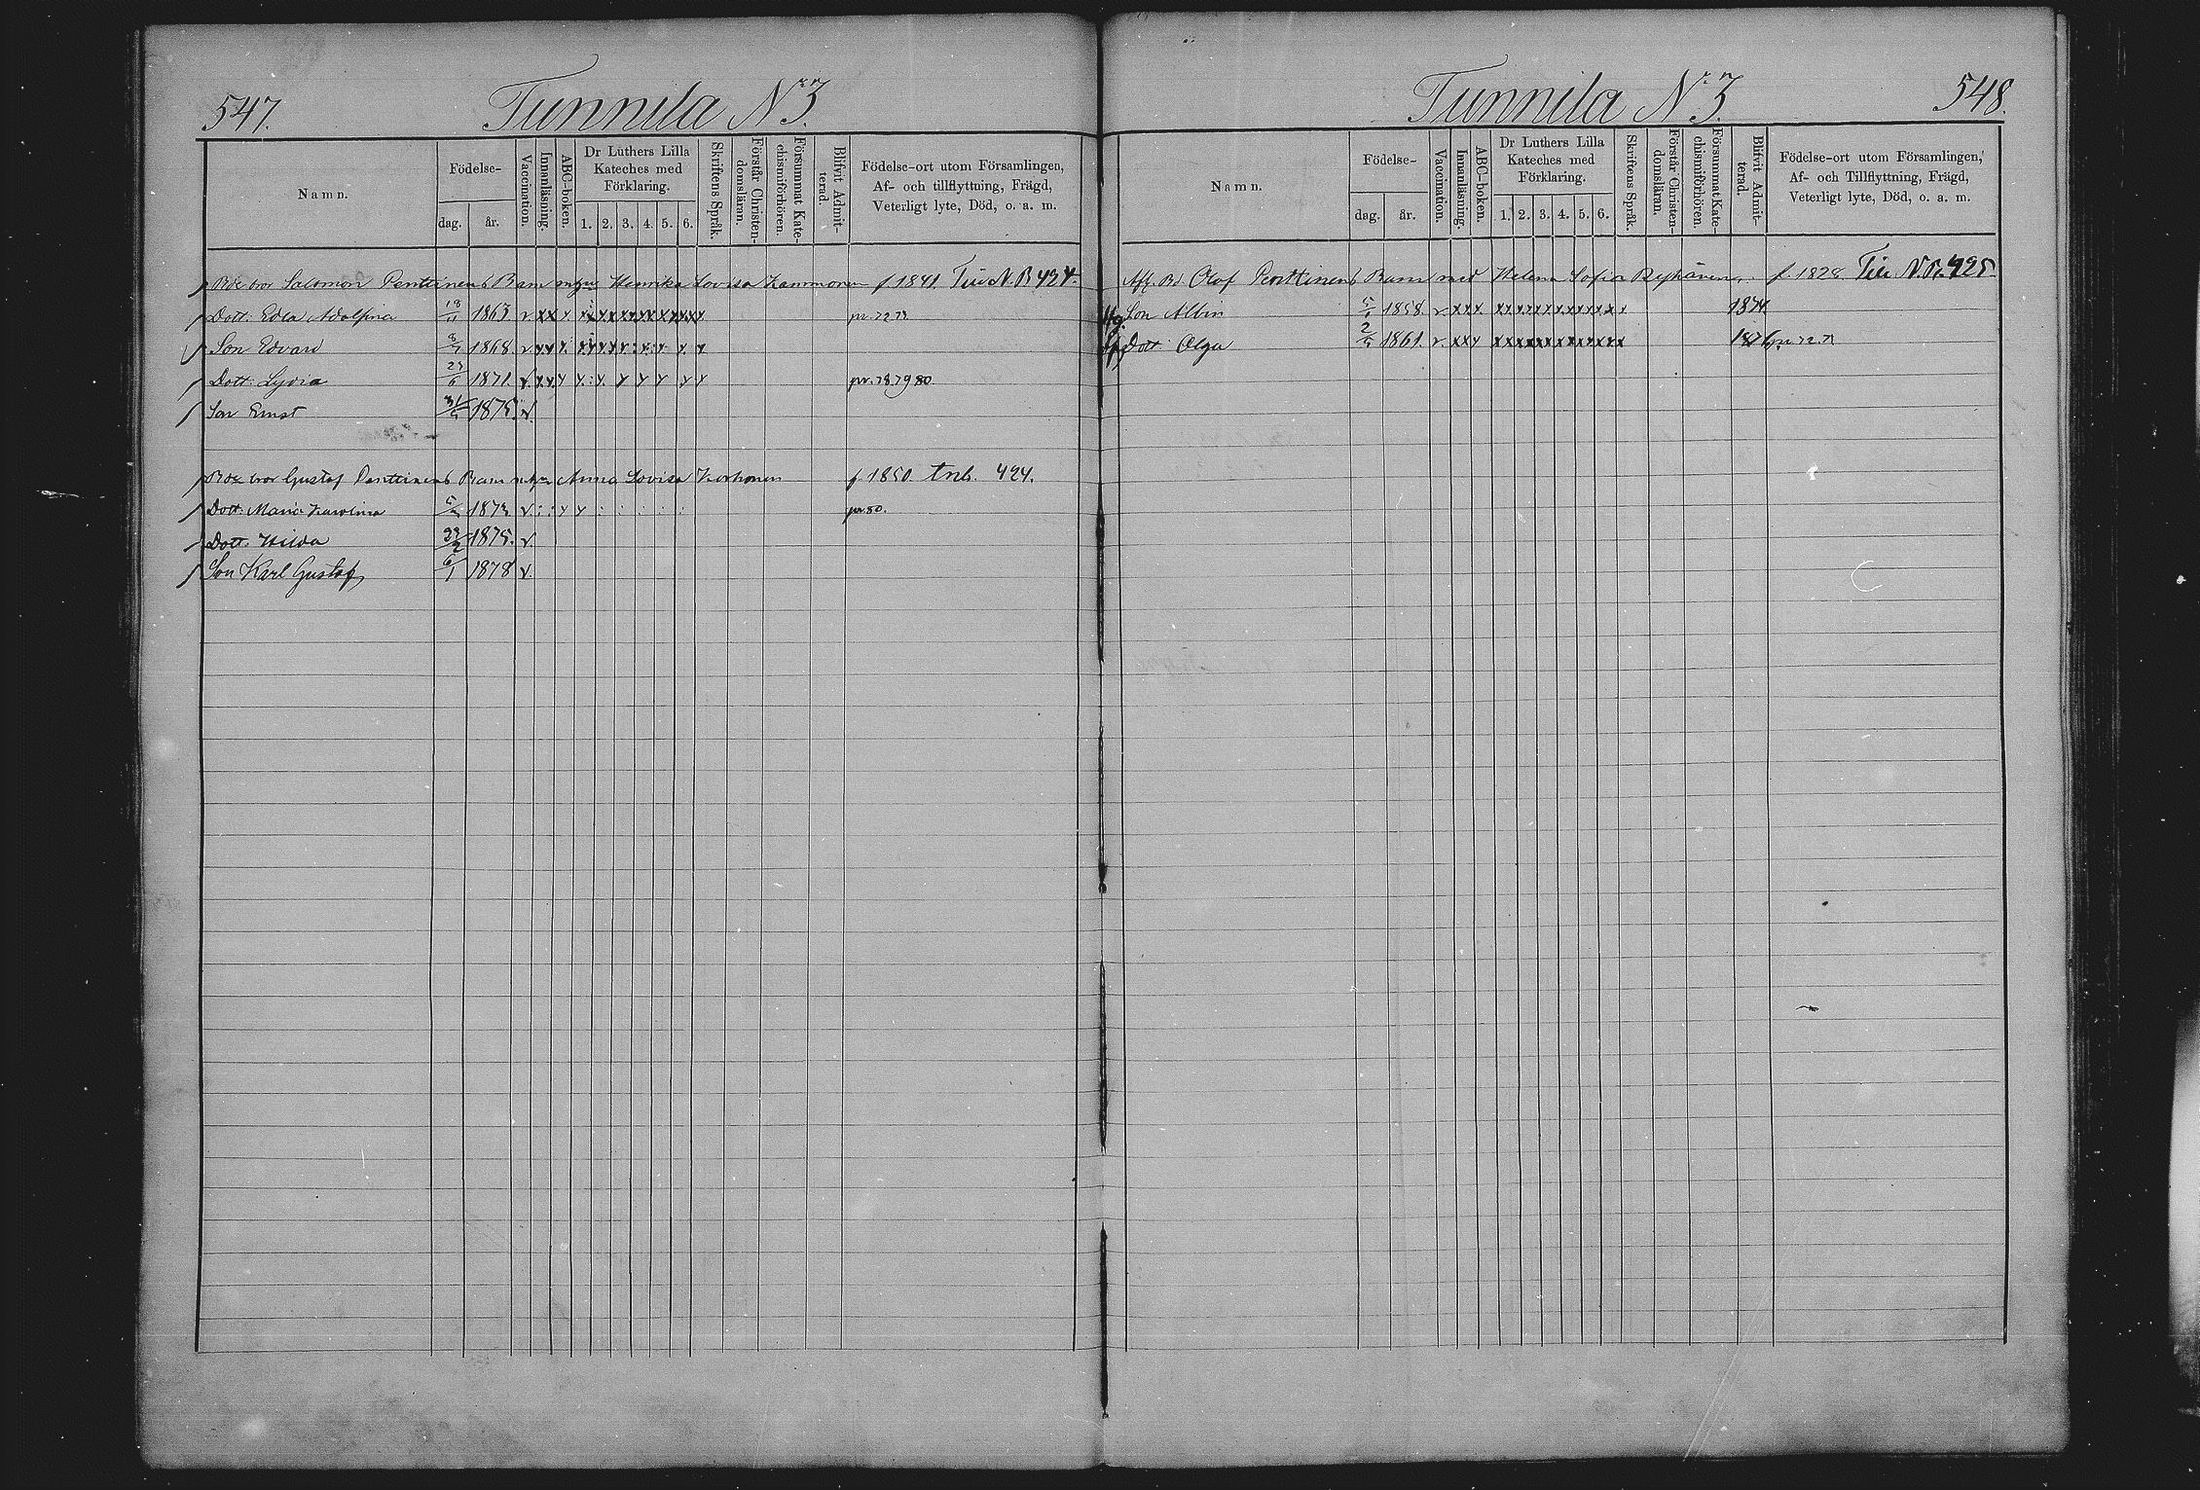 547.
Tunnila No 3.
Namn.
Födelse-
dag.
år.
Vaccination.
Innanläsning.
ABC-boken.
Dr Luthers Lilla
Kateches med
Förklaring.
1. 2. 3. 4. 5. 6.
Skriftens Språk.
Förstår Christen-
domsläran.
Försummat Kate-
chismiförhören.
Blifvit Admit-
terad.
Födelse-ort utom Församlingen,
Af- och tillflyttning, Frägd,
Veterligt lyte, Död, o. a. m.
Salomon Penttinens Barn Henrika Lovisa f 1841 N. B 424.
Dott. Edla Adolfina 18/11 1863 v xx x pr. 72 73
Son Edvard 1868 v
Dott. Lydia 1871 v pr. 78.79 80
Son Ernst 31/5 1875. v.
bror Gustaf Penttinens Barn Anna Lovisa Korhonen f 1850. 424.
Dott. Maria Karolina 1873 v pr 80.
Dott. Hilda 1875. v.
Son Karl Gustaf 6/1 1878 v.
548.
Tunnila No 3.
Namn.
Födelse-
dag.
år.
Vaccination.
Innanläsning.
ABC-boken.
Dr Luthers Lilla
Kateches med
Förklaring.
1. 2. 3. 4. 5. 6.
Skriftens Språk.
Förstår Christen-
domsläran.
Försummat Kate-
chismiförhören.
Blifvit Admit-
terad.
Födelse-ort utom Församlingen,
Af- och Tillflyttning, Frägd,
Veterligt lyte, Död, o. a. m.
Olof Penttinens Barn med Helena Sofia f. 1828 425
Son Albin 1858. v. xxx 1874.
Dott Olga 1861. v. xxx 1876